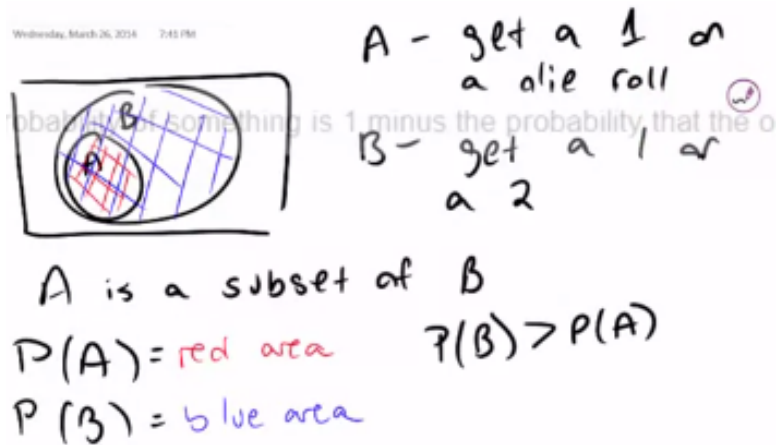 Wednesday, March 26, 2014 7:41 PM
A - get a 1 on
a die roll
B
A
obability of something is 1 minus the probability that the o
B - get a 1 or
a 2
A is a subset of B
P(A) = red area
P(B) > P(A)
P(B) = blue area